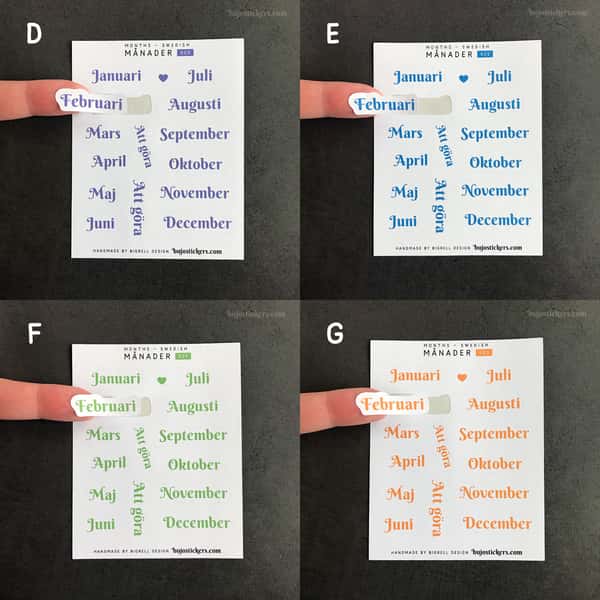 bujostickers.com
D
MONTHS - SWEDISH
MÅNADER
Januari ♥ Juli
Februari Augusti
Mars Att göra September
April Oktober
Maj Att göra November
Juni December
HANDMADE BY BIGRELL DESIGN bujostickers.com
bujostickers.com
E
MONTHS - SWEDISH
MÅNADER
Januari ♥ Juli
Februari Augusti
Mars Att göra September
April Oktober
Maj Att göra November
Juni December
HANDMADE BY BIGRELL DESIGN bujostickers.com
bujostickers.com
F
MONTHS - SWEDISH
MÅNADER
Januari ♥ Juli
Februari Augusti
Mars Att göra September
April Oktober
Maj Att göra November
Juni December
HANDMADE BY BIGRELL DESIGN bujostickers.com
bujostickers.com
G
MONTHS - SWEDISH
MÅNADER
Januari ♥ Juli
Februari Augusti
Mars Att göra September
April Oktober
Maj Att göra November
Juni December
HANDMADE BY BIGRELL DESIGN bujostickers.com